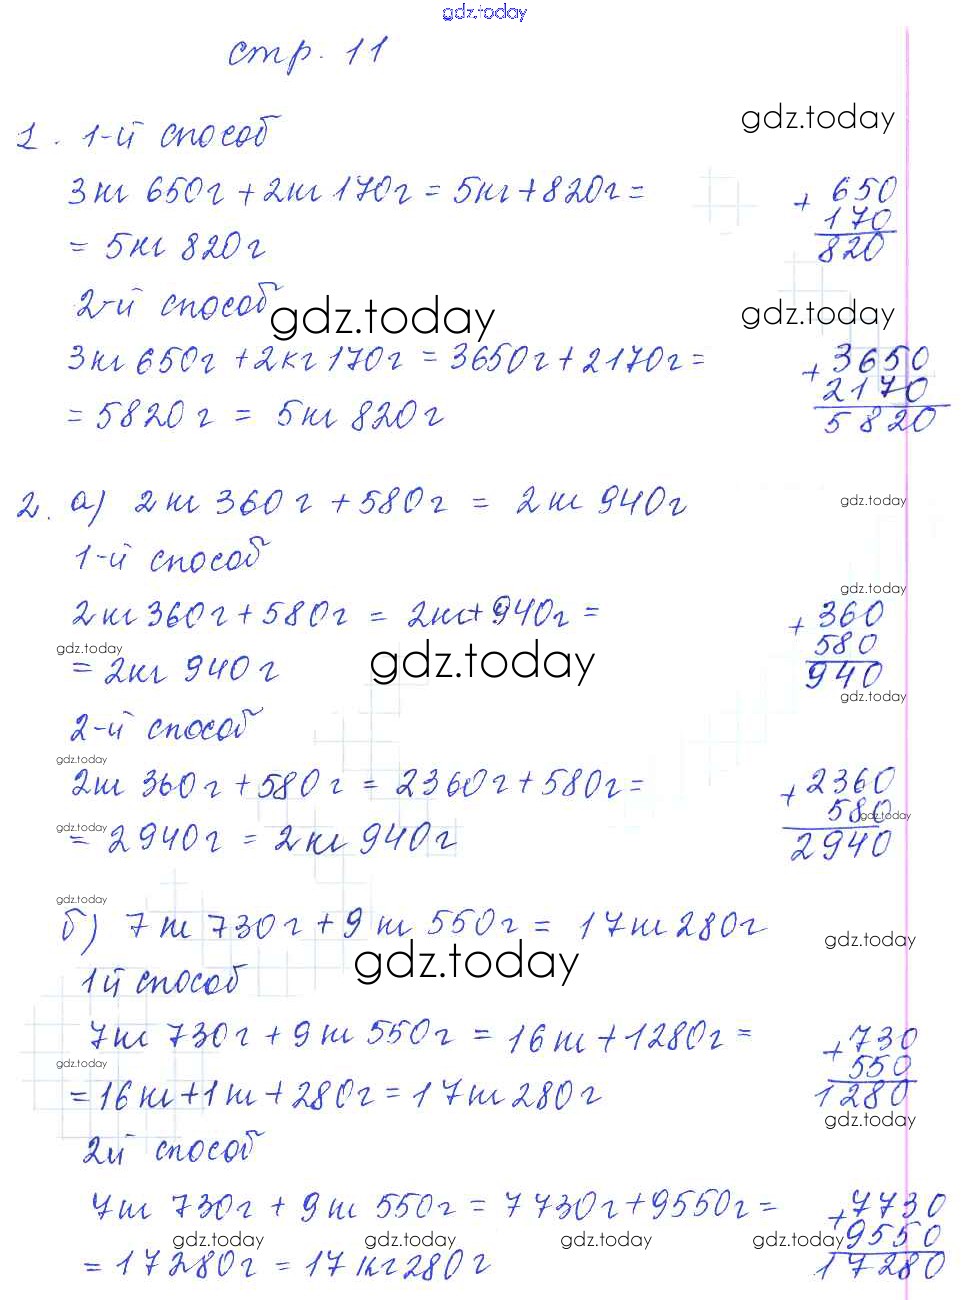 gdz.today
стр. 11
1. 1-й способ
gdz.today
3кг 650г + 2кг 170г = 5кг + 820г =
+ 650
170
820
= 5кг 820г
2-й способ
gdz.today
gdz.today
3кг 650г + 2кг 170г = 3650г + 2170г =
+ 3650
2170
5820
= 5820г = 5кг 820г
2. а) 2кг 360г + 580г = 2кг 940г
gdz.today
1-й способ
gdz.today
2кг 360г + 580г = 2кг + 940г =
+ 360
580
940
gdz.today
= 2кг 940г
gdz.today
gdz.today
2-й способ
gdz.today
2кг 360г + 580г = 2360г + 580г =
+ 2360
580
2940
gdz.today
gdz.today
= 2940г = 2кг 940г
gdz.today
б) 7кг 730г + 9кг 550г = 17кг 280г
gdz.today
gdz.today
1й способ
7кг 730г + 9кг 550г = 16кг + 1280г =
+ 730
550
1280
gdz.today
= 16кг + 1кг + 280г = 17кг 280г
gdz.today
2й способ
7кг 730г + 9кг 550г = 7730г + 9550г =
+ 7730
9550
17280
gdz.today gdz.today gdz.today gdz.today
= 17280г = 17кг 280г